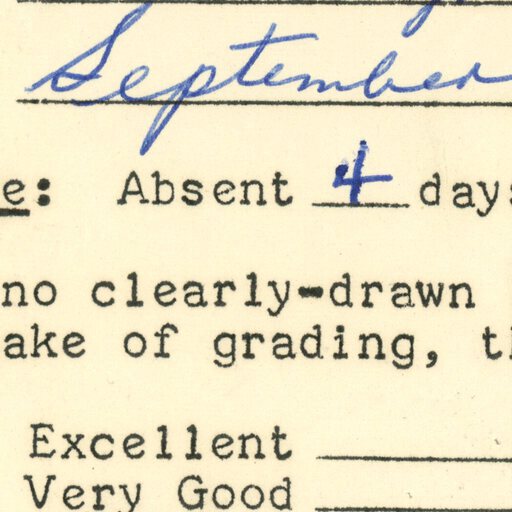 September
e: Absent 4 days
no clearly-drawn
ake of grading, th
Excellent
Very Good